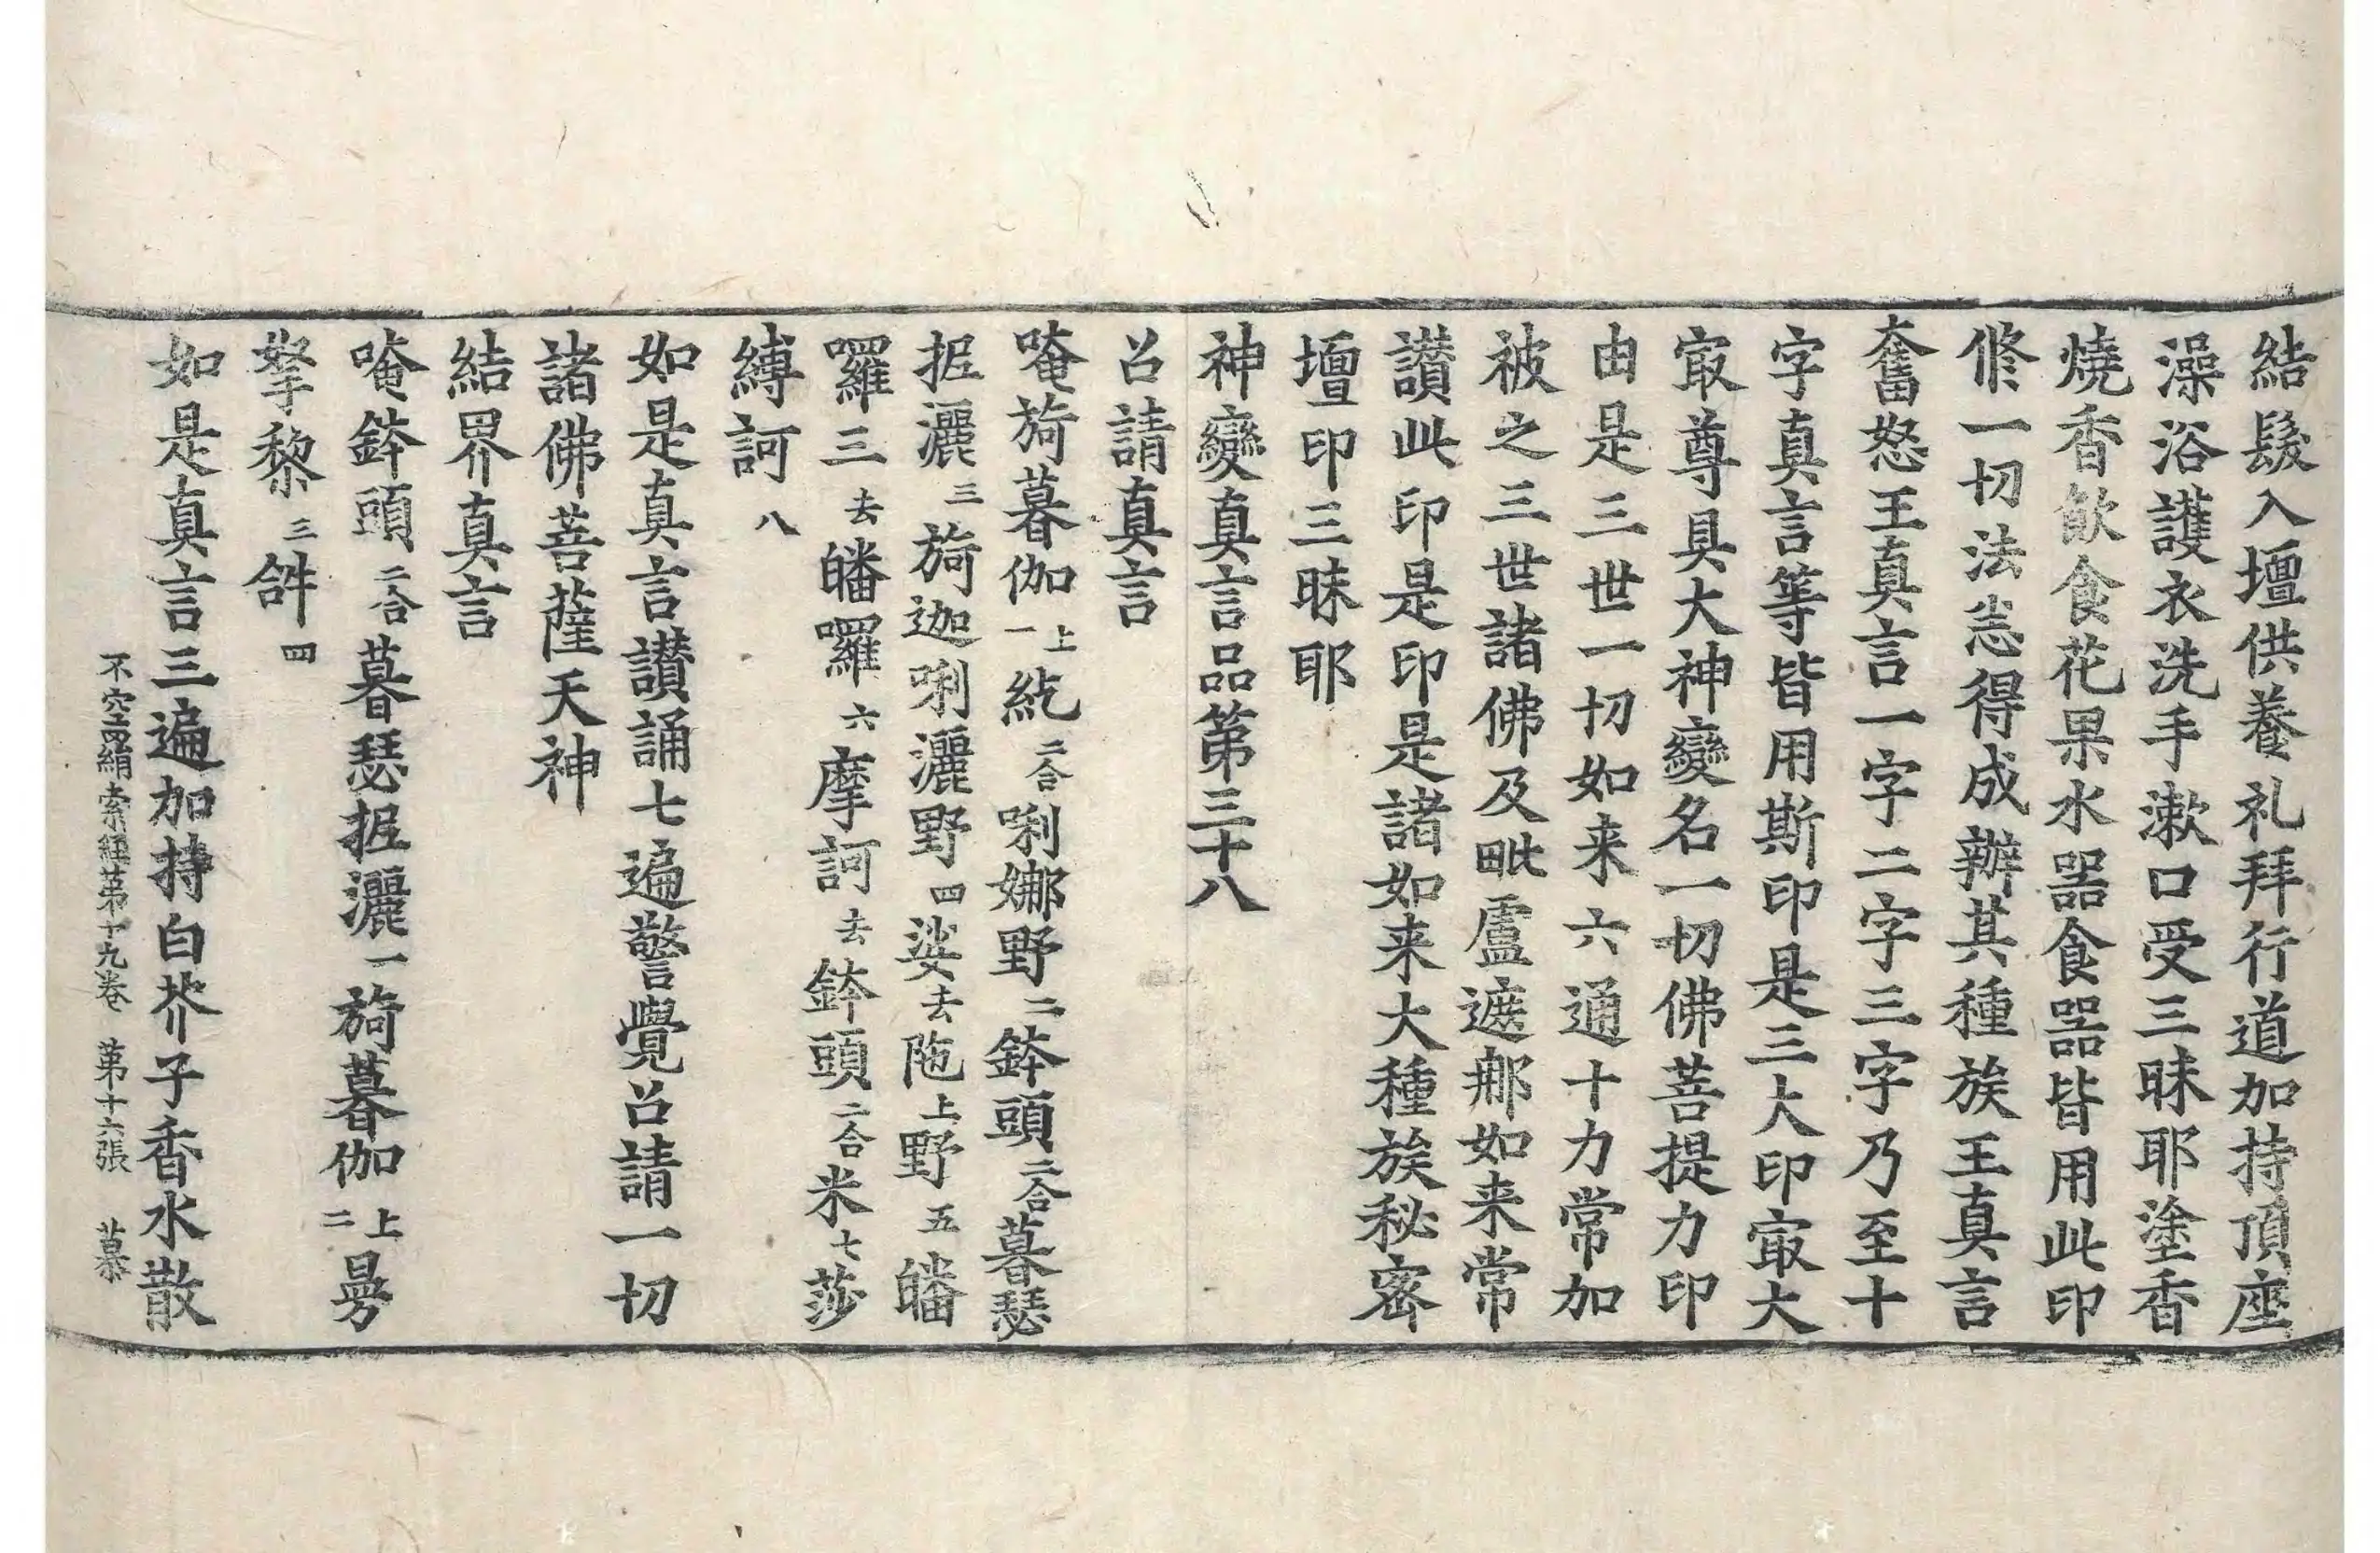 結髮入壇供養礼拜行道加持頂座
澡浴護衣洗手漱口受三昧耶塗香
燒香飲食花果水器食器皆用此印
修一切法悉得成辦其種族王真言
奮怒王真言一字二字三字乃至十
字真言等皆用斯印是三大印冣大
冣尊具大神變名一切佛菩提力印
由是三世一切如来六通十力常加
被之三世諸佛及毗盧遮那如来常
讃此印是印是諸如来大種族秘密
壇印三昧耶
神變真言品第三十八
召請真言
唵旖暮伽上一紇二合唎娜野二鉢頭二合暮瑟
抳灑三旖迦唎灑野四娑去陁上野五皤
囉三去皤囉六摩訶去鉢頭二合米七莎
縛訶八
如是真言讃誦七遍警覺召請一切
諸佛菩薩天神
結界真言
唵鉢頭二合暮瑟抳灑一旖暮伽上二曼
拏黎三𤙖四
如是真言三遍加持白芥子香水散
不空羂索經第十九卷 第十六張 慕